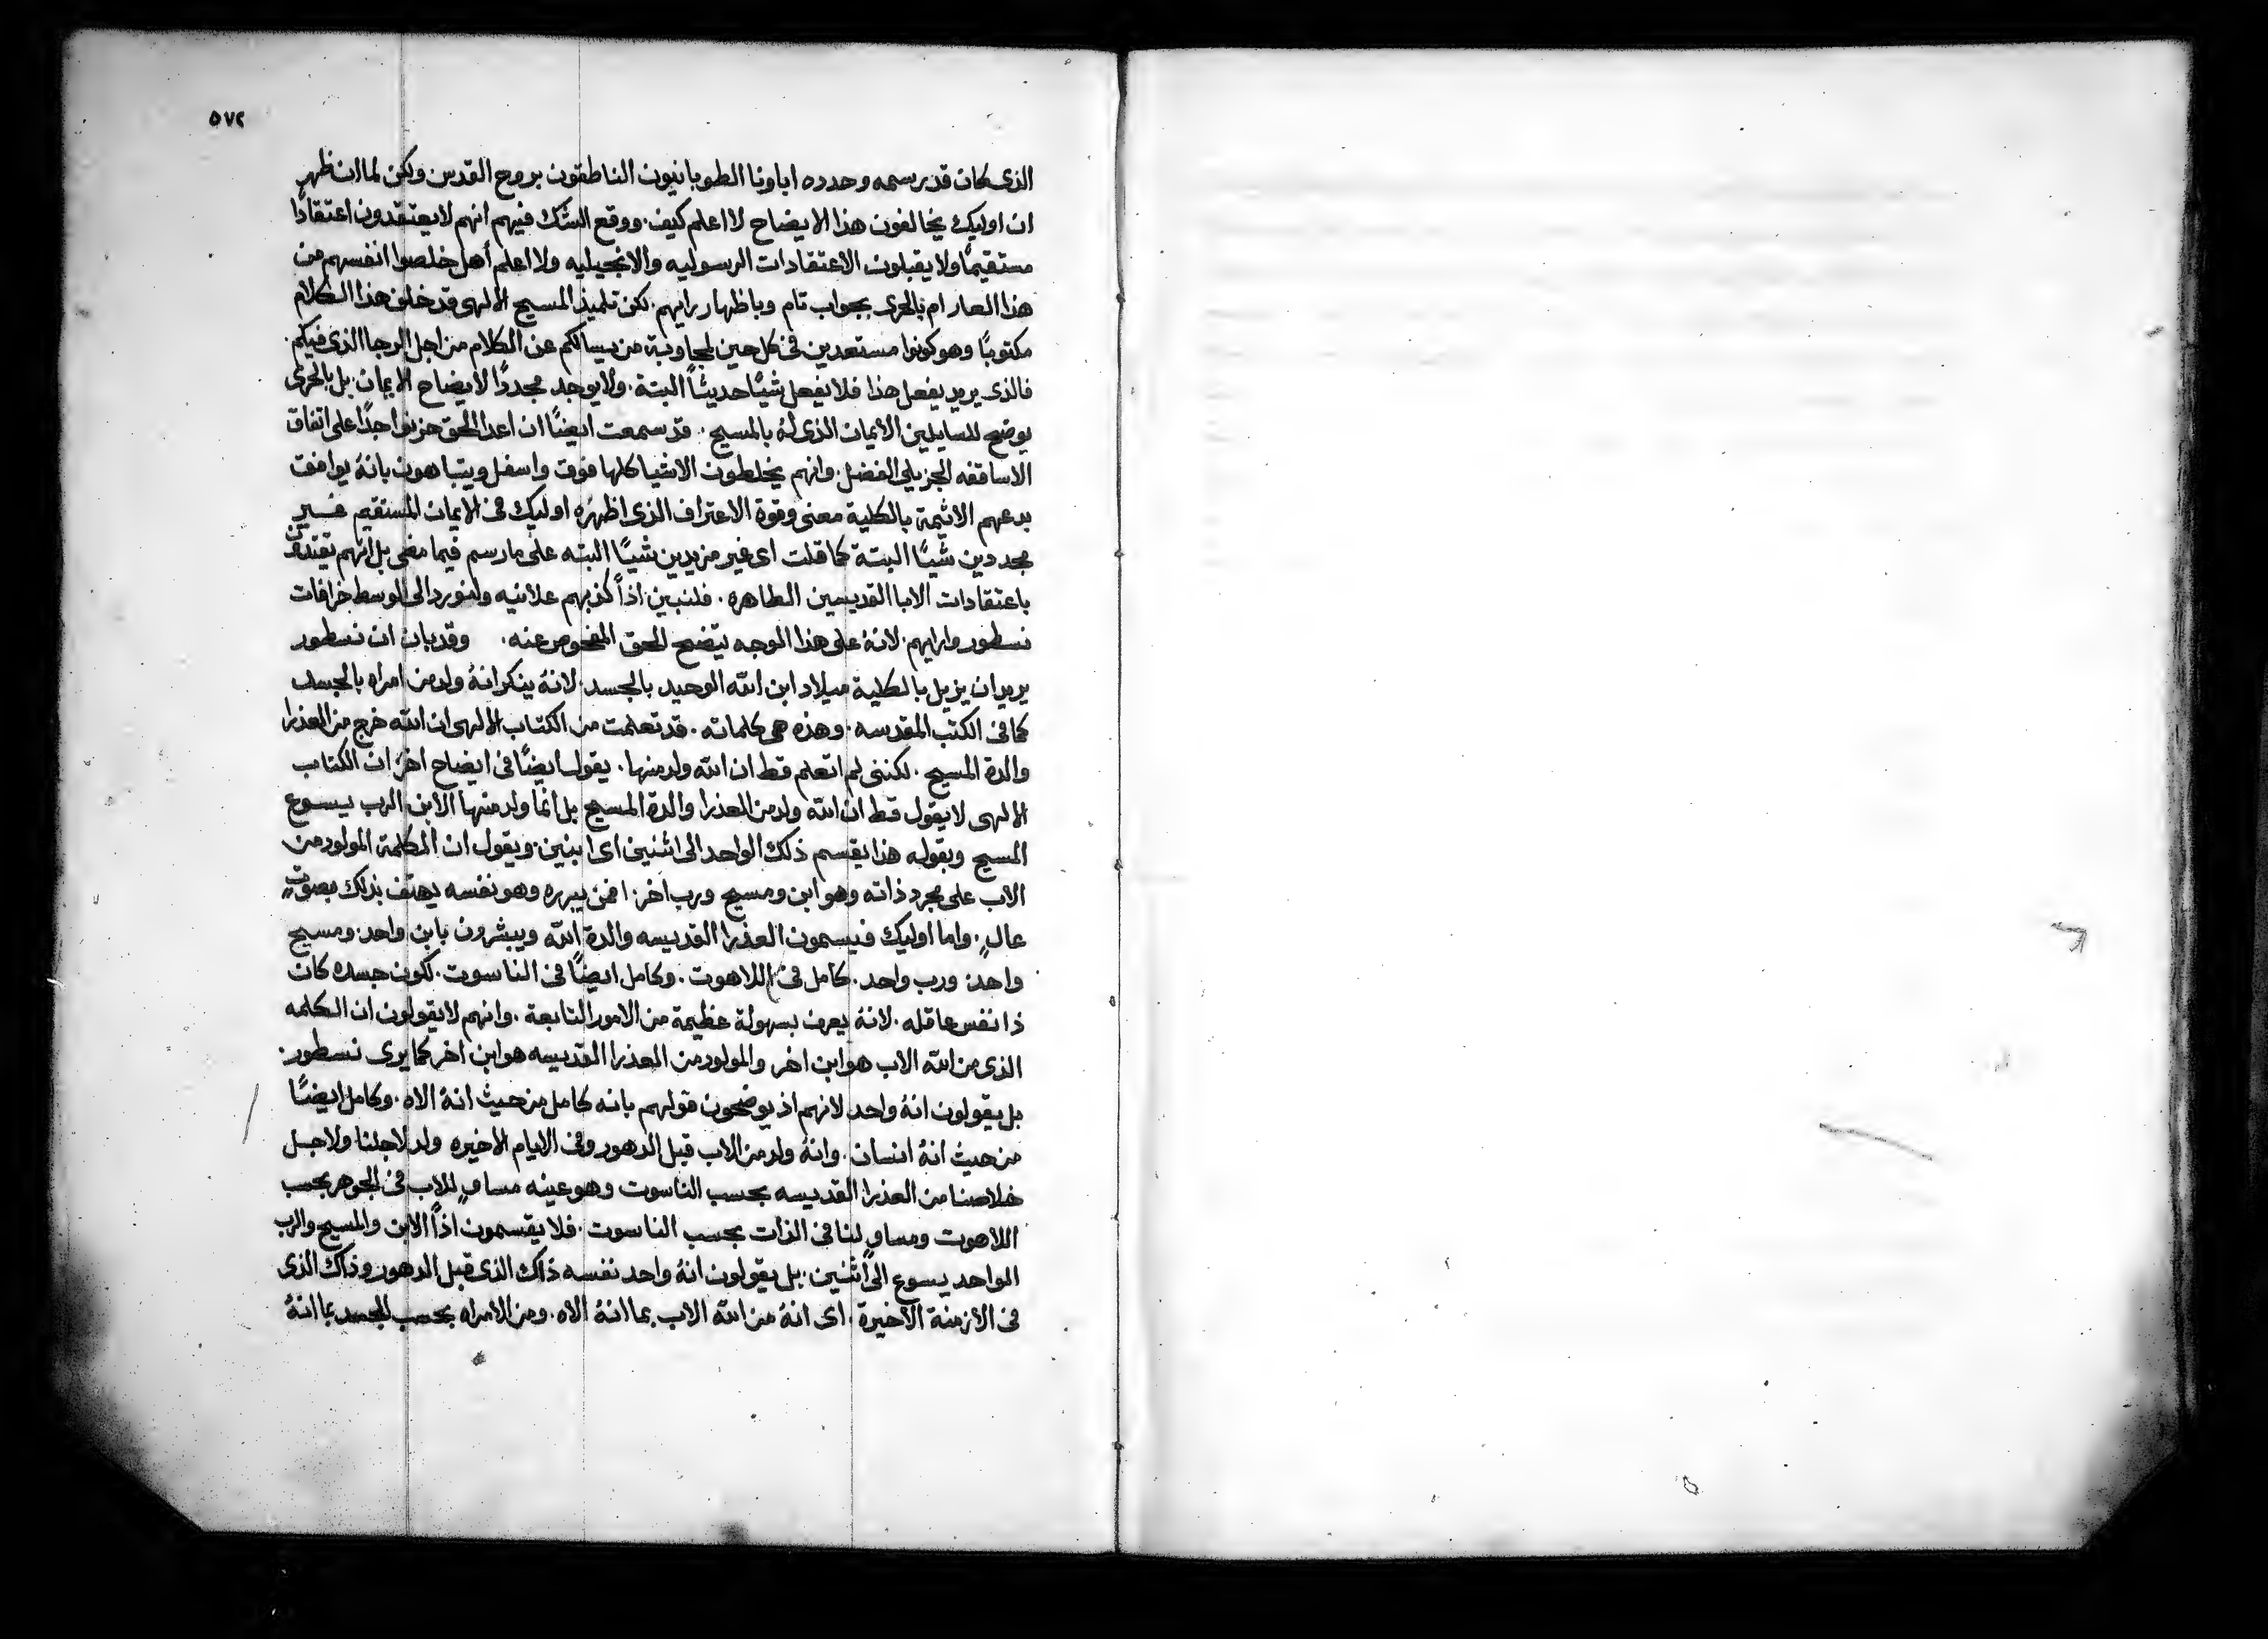 ٥٧٢
الذى كان قد رسمه وحدده اباونا الطوبانيون الناطقون بروح القدس ولكن لما ان ظهر
ان اوليك يخالفون هذا الايضاح لا اعلم كيف. ووقع الشك فيهم انهم لا يعتقدون اعتقادًا
مستقيمًا ولا يقبلون الاعتقادات الرسوليه والانجيليه ولا اعلم أهل خلصوا انفسهم من
هذا العار ام بالحرى بجواب تام وباظهار رايهم. لكن تلميذ المسيح الالهى قد خلف هذا الكلام
مكتوبًا وهو كونوا مستعدين فى كل حين لمجاوبة من يسالكم عن الكلام من اجل الرجا الذى فيكم.
فالذى يريد يفعل هذا فلا يفعل شيًا حديثًا البتة. ولا يوجد مجددًا لايضاح الايمان. بل بالحرى
يوضح للسايلين الايمان الذى له بالمسيح. قد سمعت ايضًا ان اعدا الحق حزنوا جدًا على اتفاق
الاساقفه الجزيلى الفضل. وانهم يخلطون الاشيا كلها فوق واسفل ويتباهون بانهُ يوافق
بدعهم الاثيمة بالكلية معنى وقوة الاعتراف الذى اظهره اوليك فى الايمان المستقيم غير
مجددين شيًا البتة كما قلت اى غير مزيدين شيًا البته على ما رسم فيما مضى بل انهم تقتدون
باعتقادات الابا القديسين الطاهره. فلنبين اذًا كذبهم علانيه ولنورد الى الوسط خرافات
نسطور وارايهم. لانهُ على هذا الوجه يتضح الحق المفحوص عنه. وقد بان ان نسطور
يريد ان يزيل بالكلية ميلاد ابن الله الوحيد بالجسد. لانهُ ينكر انهُ ولد من امراه بالجسد
كما فى الكتب المقدسه. وهذه هى كلماته. قد تعلمت من الكتاب الالهى ان الله خرج من العذرا
والدة المسيح. لكننى لم اتعلم قط ان الله ولد منها. يقول ايضًا فى ايضاح اخر ان الكتاب
الالهى لا يقول قط ان الله ولد من العذرا والدة المسيح بل انما ولد منها الابن الرب يسوع
المسيح وبقوله هذا يقسم ذلك الواحد الى اثنين اى ابنين. ويقول ان الكلمة المولود من
الاب على مجرد ذاته وهو ابن ومسيح ورب اخر. افمن يبرره وهو نفسه يهتف بذلك بصوتٍ
عالٍ. واما اوليك فيسمون العذرا القديسه والدة الله ويبشرون بابن واحد. ومسيح
واحد. ورب واحد. كامل فى اللاهوت. وكامل ايضًا فى الناسوت. لكون جسده كان
ذا نفس عاقله. لانهُ يعرف بسهولة عظيمة من الامور التابعة. وانهم لا يقولون ان الكلمه
الذى من الله الاب هو ابن اخر والمولود من العذرا القديسه هو ابن اخر كما يرى نسطور.
بل يقولون انهُ واحد لانهم اذ يوضحون قولهم بانه كامل من حيث انهُ الاه. وكامل ايضًا
من حيث انهُ انسان. وانهُ ولد من الاب قبل الدهور وفى الايام الاخيره ولد لاجلنا ولاجل
خلاصنا من العذرا القديسه بحسب الناسوت وهو عينه مساوٍ للاب فى الجوهر بحسب
اللاهوت ومساوٍ لنا فى الذات بحسب الناسوت. فلا يقسمون اذًا الابن والمسيح والرب
الواحد يسوع الى اثنين. بل يقولون انهُ واحد نفسه ذاك الذى قبل الدهور وذاك الذى
فى الازمنة الاخيرة. اى انهُ من الله الاب بما انهُ الاه. ومن الامراه بحسب الجسد بما انهُ